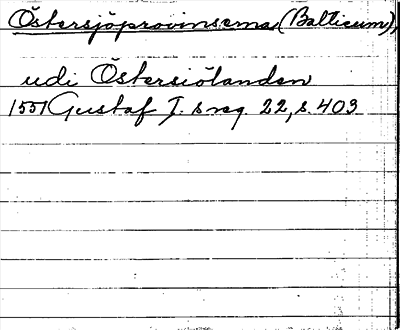 Östersjöprovinserna (Balticum),
udi Östersiölanden
1551 Gustaf I. s reg. 22, s. 403